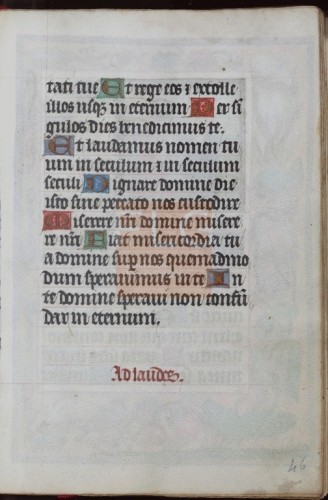 tati tue Et rege eos ⁊ extolle
illos usq̄ in eternum Per si
gulos dies benedicimus te.
Et laudamus nomen tu
um in seculum ⁊ in seculum
seculi Dignare domine die
isto sine peccato nos custodire
Miserere nr̄i domine misere
re nr̄i Fiat misericordia tu
a domine super nos quemadmo
dum sperauimus in te In
te domine speraui non confū
dar in eternum.
Ad laudes.
46